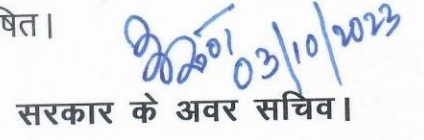 षित।
03/10/2023
सरकार के अवर सचिव।